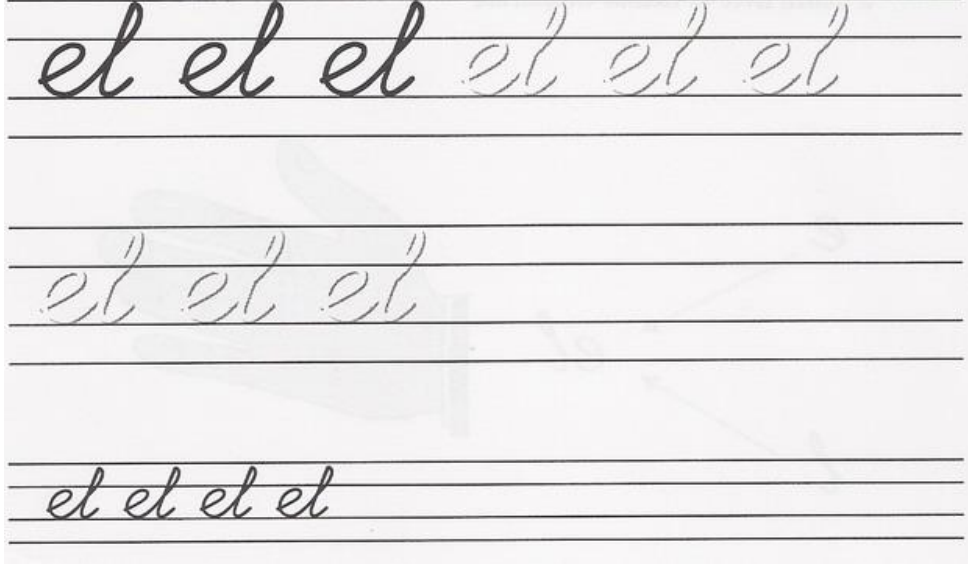 el el el el el el
el el el
el el el el